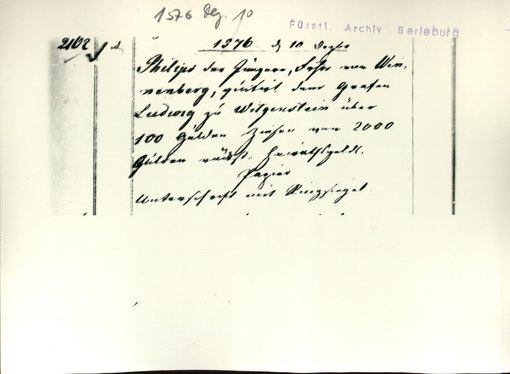 1576 Dez. 10
Fürstl. Archiv Berleburg
2102
1576 d 10 Dezbr
Philips der Jüngere, Fhr von Win-
nenberg, quitirt dem Grafen
Ludwig zu Witgenstein über
100 Gulden Zinsen von 2000
Gulden rückst. Heirathsgeldt.
Papier
Unterschrift mit Ringsiegel.